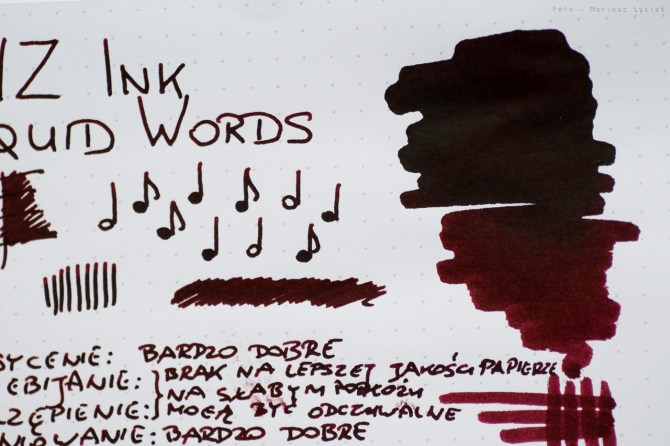 Foto - Mariusz Lysien
IZ INK
QUID WORDS
SYCENIE: BARDZO DOBRE
EBIJANIE: BRAK NA LEPSZEJ JAKOŚCI PAPIERZE
NA SŁABYM
ZĘPIENIE: MOGĄ BYĆ ODCZUWALNE
NIOWANIE: BARDZO DOBRE